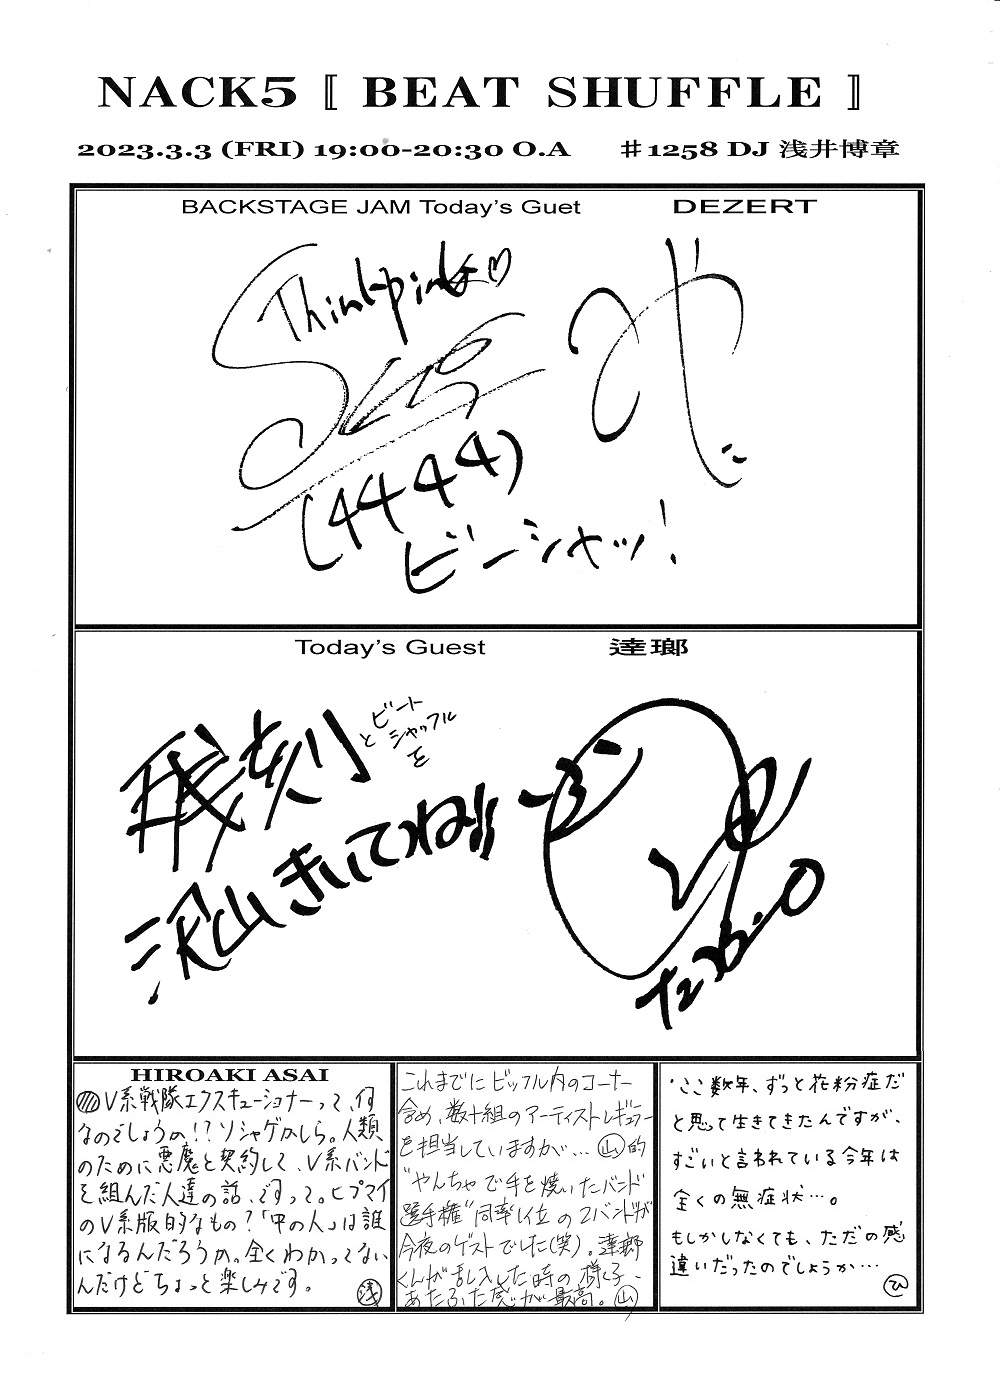 NACK5 〚 BEAT SHUFFLE 〛
2023.3.3 (FRI) 19:00-20:30 O.A #1258 DJ 浅井博章
BACKSTAGE JAM Today's Guet DEZERT
Think pink♡
(4444)
ビーシャッ!
Today's Guest 逹瑯
残刻とビートシャッフルを
沢山きいてね!!
HIROAKI ASAI
V系戦隊エクスキューショナーって、何
なのでしょうか!?ソシャゲかしら。人類
のために悪魔と契約して、V系バンド
を組んだ人達の話、ですって。ヒプマイ
のV系版的なもの?「中の人」は誰
になるんだろうか。全くわかってない
んだけどちょっと楽しみです。 浅
これまでにビッフル内のコーナー
含め、数十組のアーティストレギュラー
を担当していますが… 山的
"やんちゃで手を焼いたバンド
選手権"同率1位の2バンドが
今夜のゲストでした(笑)。逹瑯
くんが乱入した時の様子、
あたふた感が最高。 山
ここ数年、ずっと花粉症だ
と思って生きてきたんですが、
すごいと言われている今年は
全くの無症状…。
もしかしなくても、ただの感
違いだったのでしょうか… ひ